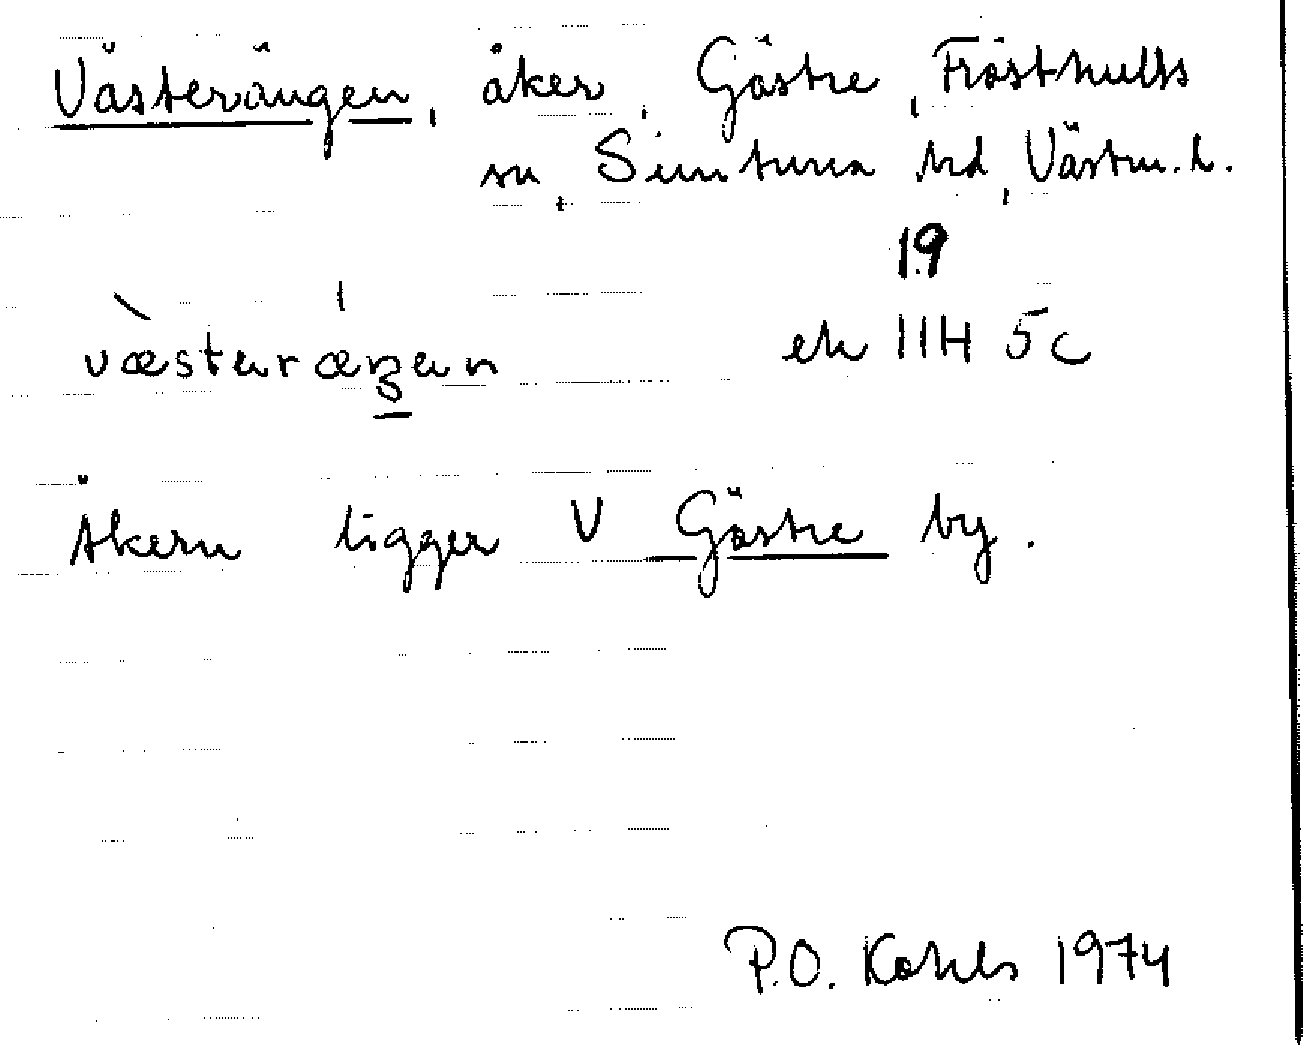 Västerängen, åker, Gästre, Frösthults
sn, Simtuna hd, Västm. l.
19
væsterængen ek 11H 5c
Åkern ligger V Gästre by.
P.O. Kohls 1974